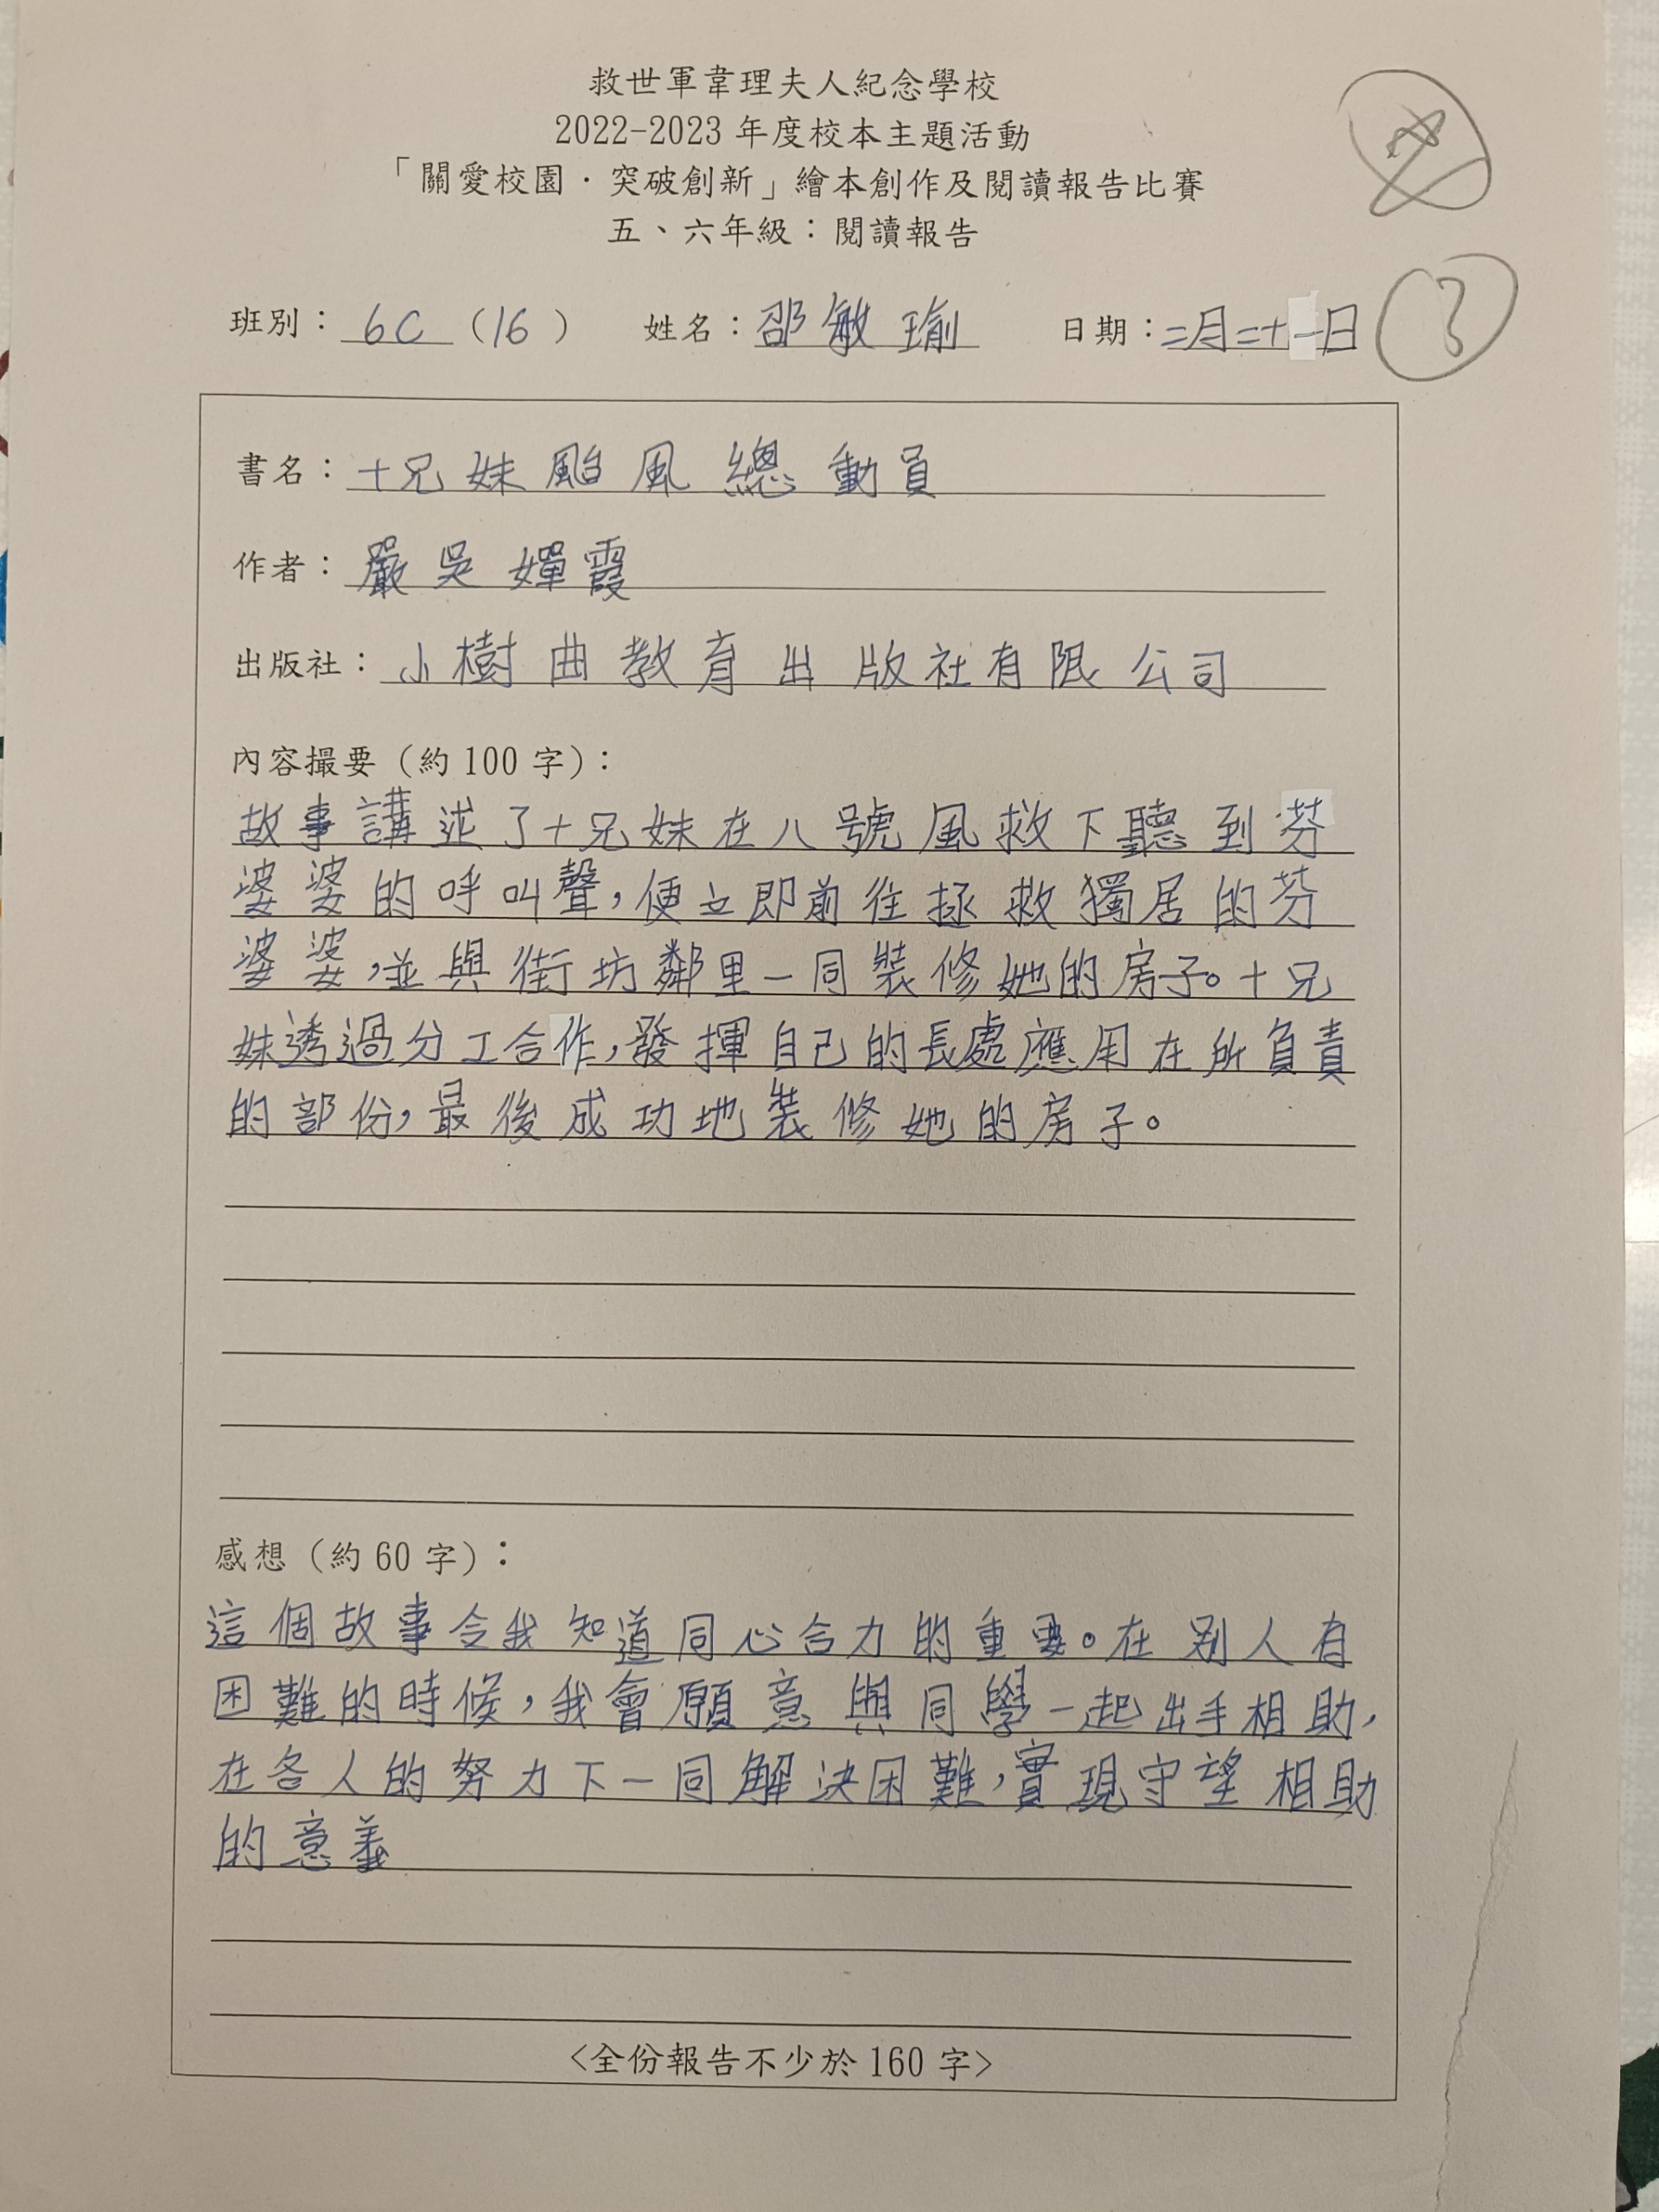 救世軍韋理夫人紀念學校
2022-2023 年度校本主題活動
「關愛校園．突破創新」繪本創作及閱讀報告比賽
五、六年級：閱讀報告
班別：6C（16） 姓名：邵敏瑜 日期：二月二十一日
書名：十兄妹颱風總動員
作者：嚴吳嬋霞
出版社：小樹曲教育出版社有限公司
內容撮要（約 100 字）：
故事講述了十兄妹在八號風救下聽到芬
婆婆的呼叫聲，便立即前往拯救獨居的芬
婆婆，並與街坊鄰里一同裝修她的房子。十兄
妹透過分工合作，發揮自己的長處應用在所負責
的部份，最後成功地裝修她的房子。
感想（約 60 字）：
這個故事令我知道同心合力的重要。在別人有
困難的時候，我會願意與同學一起出手相助，
在各人的努力下一同解決困難，實現守望相助
的意義
<全份報告不少於 160 字>